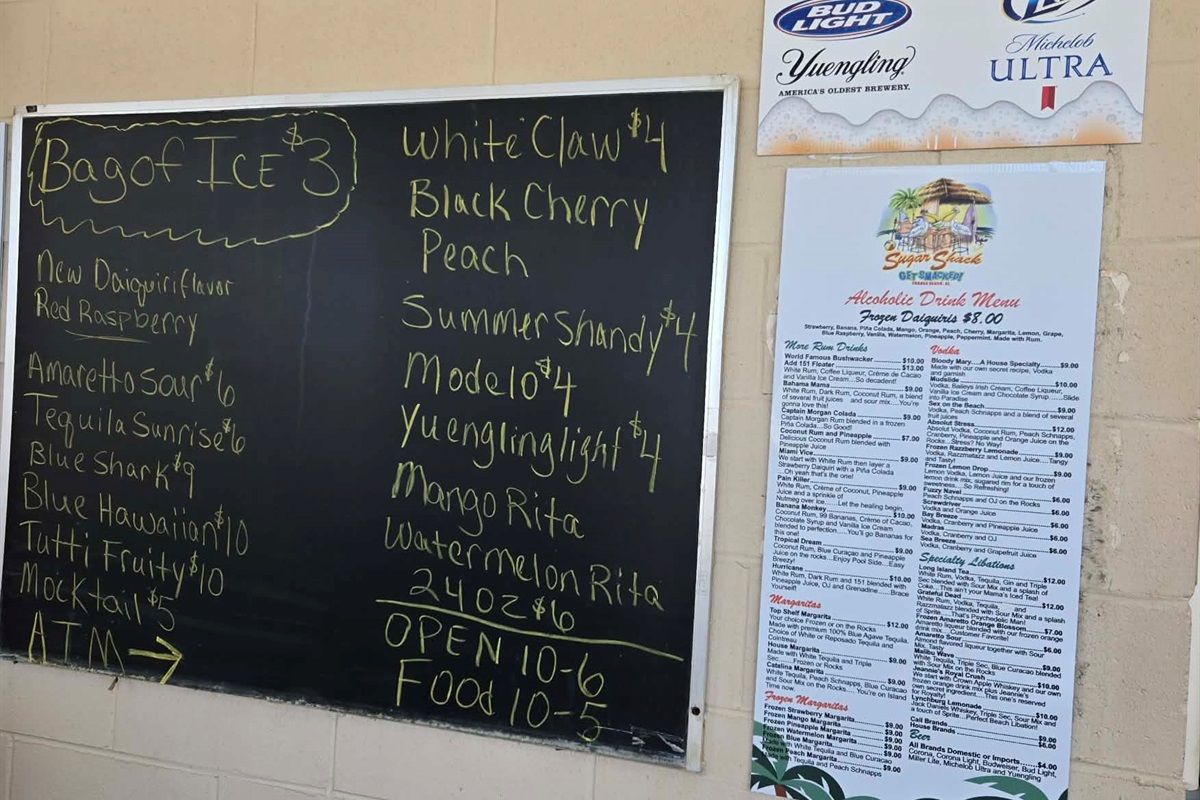 Bag of ICE $3
New Daiquiri flavor
Red Raspberry
Amaretto Sour $6
Tequila Sunrise $6
Blue Shark $9
Blue Hawaiian $10
Tutti Fruity $10
Mocktail $5
ATM →
White Claw $4
Black Cherry
Peach
Summer Shandy $4
Modelo $4
Yuengling light $4
Mango Rita
Watermelon Rita
24oz $6
OPEN 10-6
Food 10-5
BUD LIGHT
Yuengling
AMERICA'S OLDEST BREWERY.
Michelob
ULTRA
Sugar Shack
GET SMACKED!
Alcoholic Drink Menu
Frozen Daiquiris $8.00
Strawberry, Banana, Piña Colada, Mango, Orange, Peach, Cherry, Margarita, Lemon, Grape,
Blue Raspberry, Vanilla, Watermelon, Pineapple, Peppermint. Made with Rum.
More Rum Drinks
World Famous Bushwacker $10.00
Add 151 Floater $13.00
White Rum, Coffee Liqueur, Crème de Cacao
and Vanilla Ice Cream...So decadent!
Bahama Mama $9.00
White Rum, Dark Rum, Coconut Rum, a blend
of several fruit juices and sour mix....You're
gonna love this!
Captain Morgan Colada $9.00
Captain Morgan Rum blended in a frozen
Piña Colada...So Good!
Coconut Rum and Pineapple $7.00
Delicious Coconut Rum blended with
Pineapple Juice
Miami Vice $9.00
We start with White Rum then layer a
Strawberry Daiquiri with a Piña Colada
...Oh yeah that's the one!
Pain Killer $9.00
White Rum, Crème of Coconut, Pineapple
Juice and a sprinkle of
Nutmeg over ice......Let the healing begin.
Banana Monkey $10.00
Coconut Rum, 99 Bananas, Crème of Cacao,
Chocolate Syrup and Vanilla Ice Cream
blended to perfection.....You'll go Bananas for
this one!
Tropical Dream $9.00
Coconut Rum, Blue Curaçao and Pineapple
Juice on the rocks...Enjoy Pool Side....Easy
Breezy!
Hurricane $10.00
White Rum, Dark Rum and 151 blended with
Pineapple Juice, OJ and Grenadine......Brace
Yourself!
Margaritas
Top Shelf Margarita $12.00
Your choice Frozen or on the Rocks
Made with premium 100% Blue Agave Tequila.
Choice of White or Reposado Tequila and
Cointreau
House Margarita $9.00
Made with White Tequila and Triple
Sec.......Frozen or Rocks
Catalina Margarita $9.00
White Tequila, Peach Schnapps, Blue Curacao
and Sour Mix on the Rocks.... You're on Island
Time now.
Frozen Margaritas
Frozen Strawberry Margarita $9.00
Frozen Mango Margarita $9.00
Frozen Pineapple Margarita $9.00
Frozen Watermelon Margarita $9.00
Frozen Blue Margarita $9.00
Made with White Tequila and Blue Curacao
Frozen Peach Margarita $9.00
Made with Tequila and Peach Schnapps
Vodka
Bloody Mary....A House Specialty $9.00
Made with our own secret recipe, Vodka
and garnish
Mudslide $10.00
Vodka, Baileys Irish Cream, Coffee Liqueur,
Vanilla Ice Cream and Chocolate Syrup .......Slide
into Paradise
Sex on the Beach $9.00
Vodka, Peach Schnapps and a blend of several
fruit juices
Absolut Stress $12.00
Absolut Vodka, Coconut Rum, Peach Schnapps,
Cranberry, Pineapple and Orange Juice on the
Rocks...Stress? No Way!
Frozen Razzberry Lemonade $9.00
Vodka, Razzmatazz and Lemon Juice....Tangy
and Tasty!
Frozen Lemon Drop $9.00
Lemon Vodka, Lemon Juice and our frozen
lemon drink mix, sugared rim for a touch of
sweetness....So Refreshing!
Fuzzy Navel $6.00
Peach Schnapps and OJ on the Rocks
Screwdriver $6.00
Vodka and Orange Juice
Bay Breeze $6.00
Vodka, Cranberry and Pineapple Juice
Madras $6.00
Vodka, Cranberry and OJ
Sea Breeze $6.00
Vodka, Cranberry and Grapefruit Juice
Specialty Libations
Long Island Tea $12.00
White Rum, Vodka, Tequila, Gin and Triple
Sec blended with Sour Mix and a splash of
Coke....This isn't your Mama's Iced Tea!
Grateful Dead $12.00
White Rum, Vodka, Tequila, and
Razzmatazz blended with Sour Mix and a splash
of Sprite....That's Psychedelic Man!
Frozen Amaretto Orange Blossom $7.00
Amaretto liqueur blended with our frozen orange
drink mix...Customer Favorite!
Amaretto Sour $6.00
Almond flavored liqueur together with Sour
Mix, Tasty
Malibu Wave $9.00
White Tequila, Triple Sec, Blue Curacao blended
with Sour Mix on the Rocks
Jeannie's Royal Crush $10.00
We start with Crown Apple Whiskey and our own
frozen orange drink mix plus Jeannie's
own secret ingredient....This one's reserved
for Royalty!
Lynchburg Lemonade $10.00
Jack Daniels Whiskey, Triple Sec, Sour Mix and
a touch of Sprite...Perfect Beach Libation!
Call Brands $9.00
House Brands $6.00
Beer
All Brands Domestic or Imports $4.00
Corona, Corona Light, Budweiser, Bud Light,
Miller Lite, Michelob Ultra and Yuengling